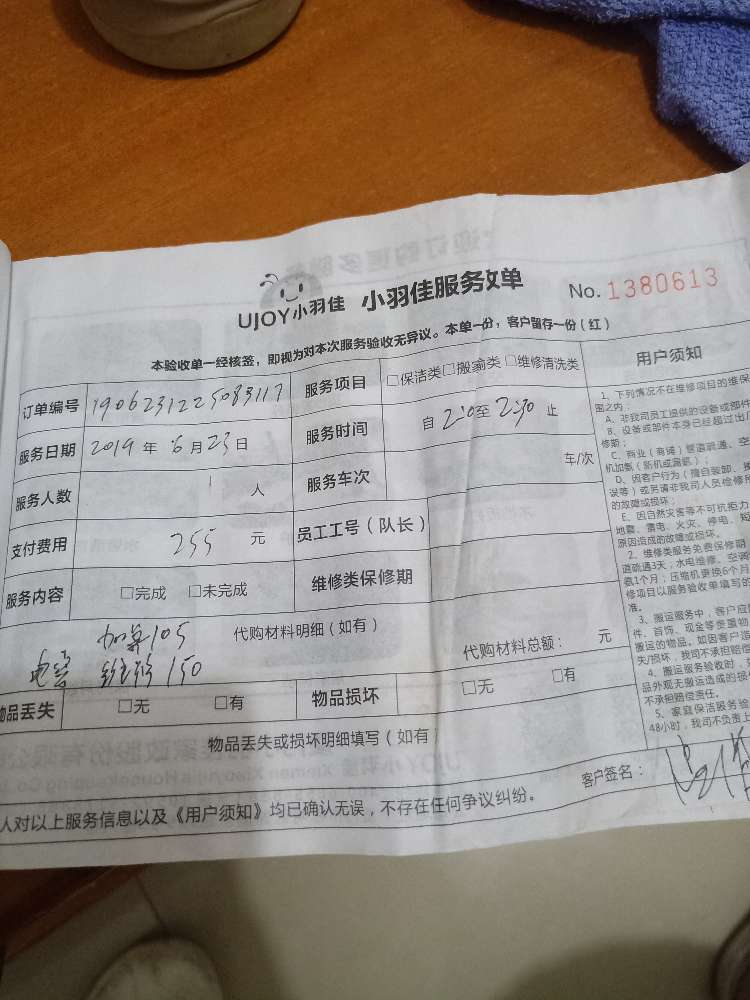 UJOY小羽佳 小羽佳服务效单 No. 1380613
本验收单一经核签，即视为对本次服务验收无异议。本单一分，客户留存一份（红）
订单编号 1906231225083117 服务项目 □保洁类□搬输类□维修清洗类
服务日期 2019 年 6 月 23 日 服务时间 自 2:0 至 2:30 止
服务人数 1 人 服务车次 车/次
支付费用 255 元 员工工号（队长）
服务内容 □完成 □未完成 维修类保修期
代购材料明细（如有） 代购材料总额： 元
105
150
物品丢失 □无 □有 物品损坏 □无 □有
物品丢失或损坏明细填写（如有）
人对以上服务信息以及《用户须知》均已确认无误，不存在任何争议纠纷。 客户签名：
用户须知
1、下列情况不在维修项目的维保
围之内：
A、非我司员工提供的设备或部件
B、设备或部件本身已经超过出厂
修期；
C、商业（商铺）管道疏通、空
机加氨（新机或漏氨）；
D、因客户行为（擅自装卸、
误等）或另请非我司人员检修
的故障或损坏；
E、因自然灾害等不可抗拒力
地震、雷电、火灾、停电、短
原因造成的故障或损坏。
2、维修类服务免费保修期
道疏通3天；水电维修、空调
氨1个月；压缩机更换6个月
修项目以服务验收单填写的
准。
3、搬运服务中，客户应
件、首饰、现金等贵重物
搬运的物品。如因客户
失/损坏，我司不承担赔偿
4、搬运服务验收时，
品外观无搬运造成的损
不承担赔偿责任。
5、家庭保洁服务验
48小时，我司不负责